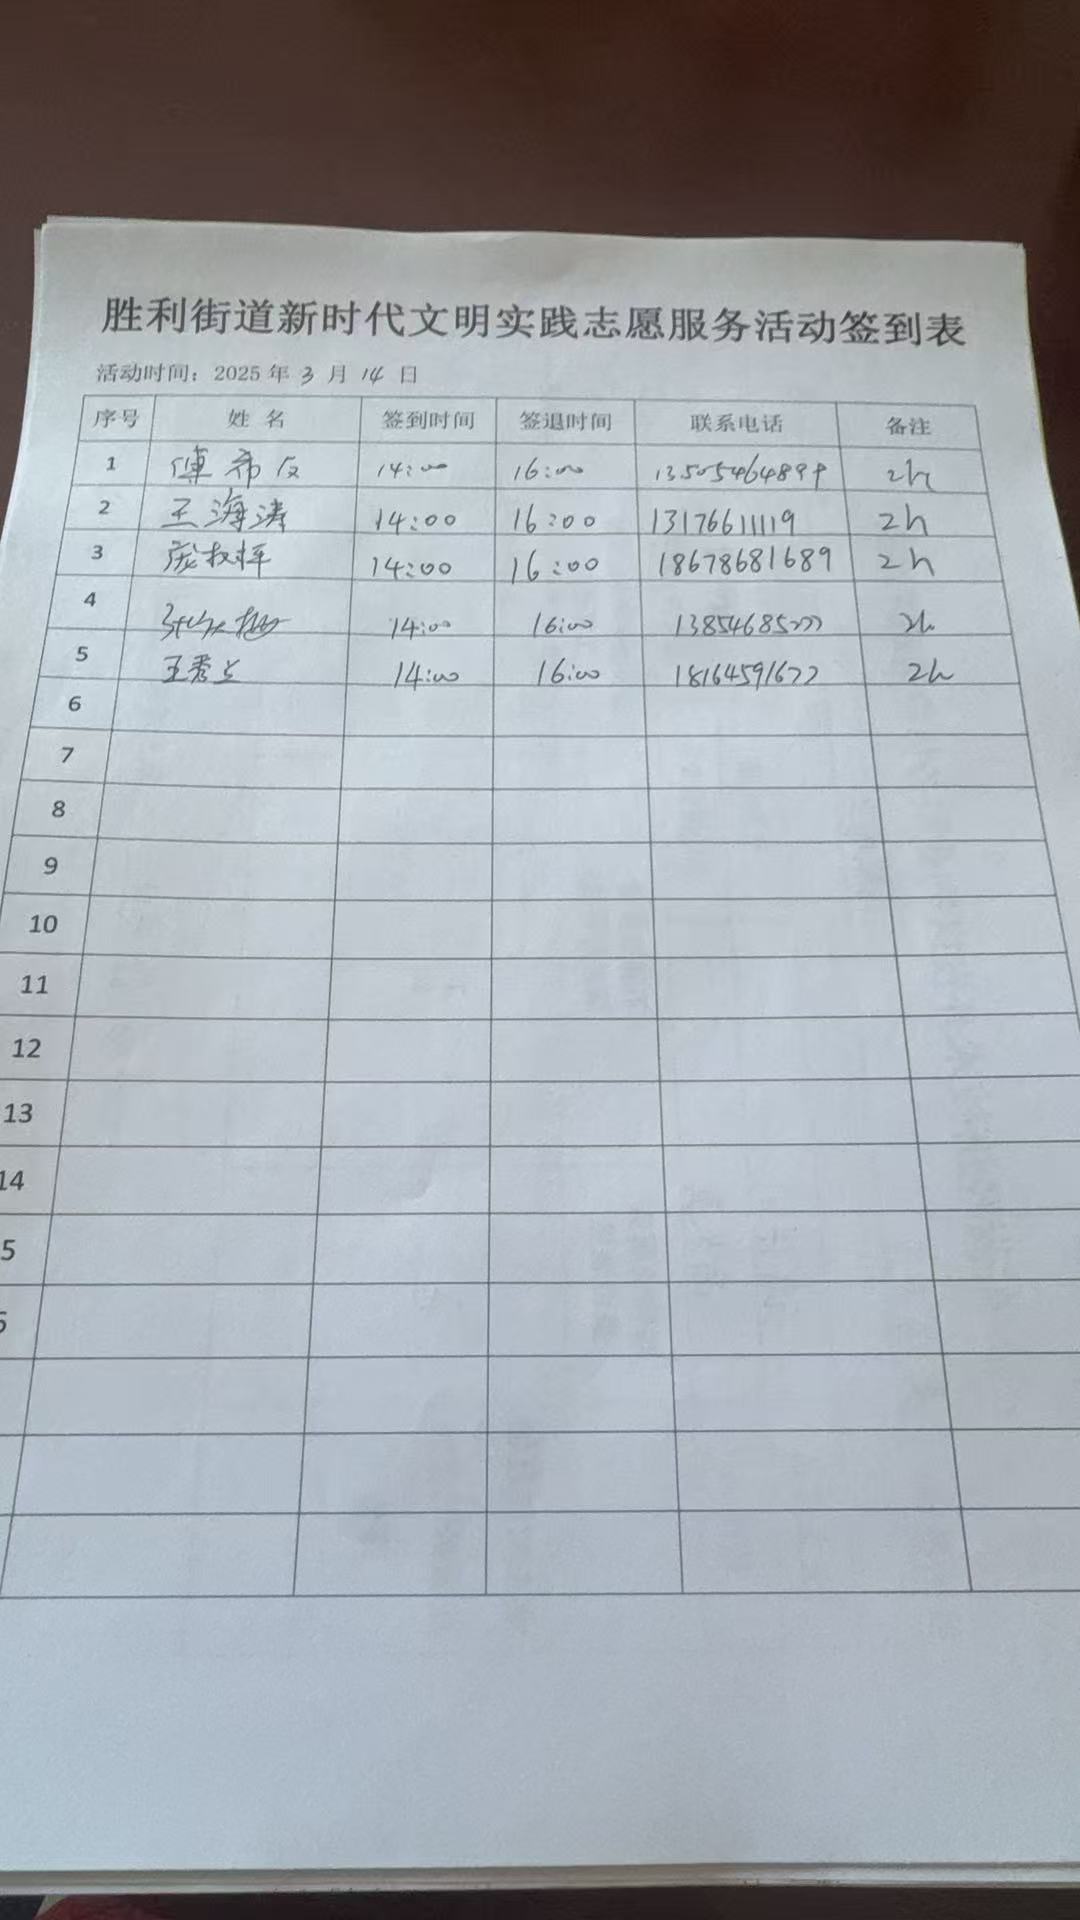 胜利街道新时代文明实践志愿服务活动签到表
活动时间：2025 年 3 月 14 日
序号 姓 名 签到时间 签退时间 联系电话 备注
1 14:00 16:00 13505464899 2h
2 王海涛 14:00 16:00 13176611119 2h
3 14:00 16:00 18678681689 2h
4 14:00 16:00 2h
5 王秀兰 14:00 16:00 2h
6
7
8
9
10
11
12
13
14
5